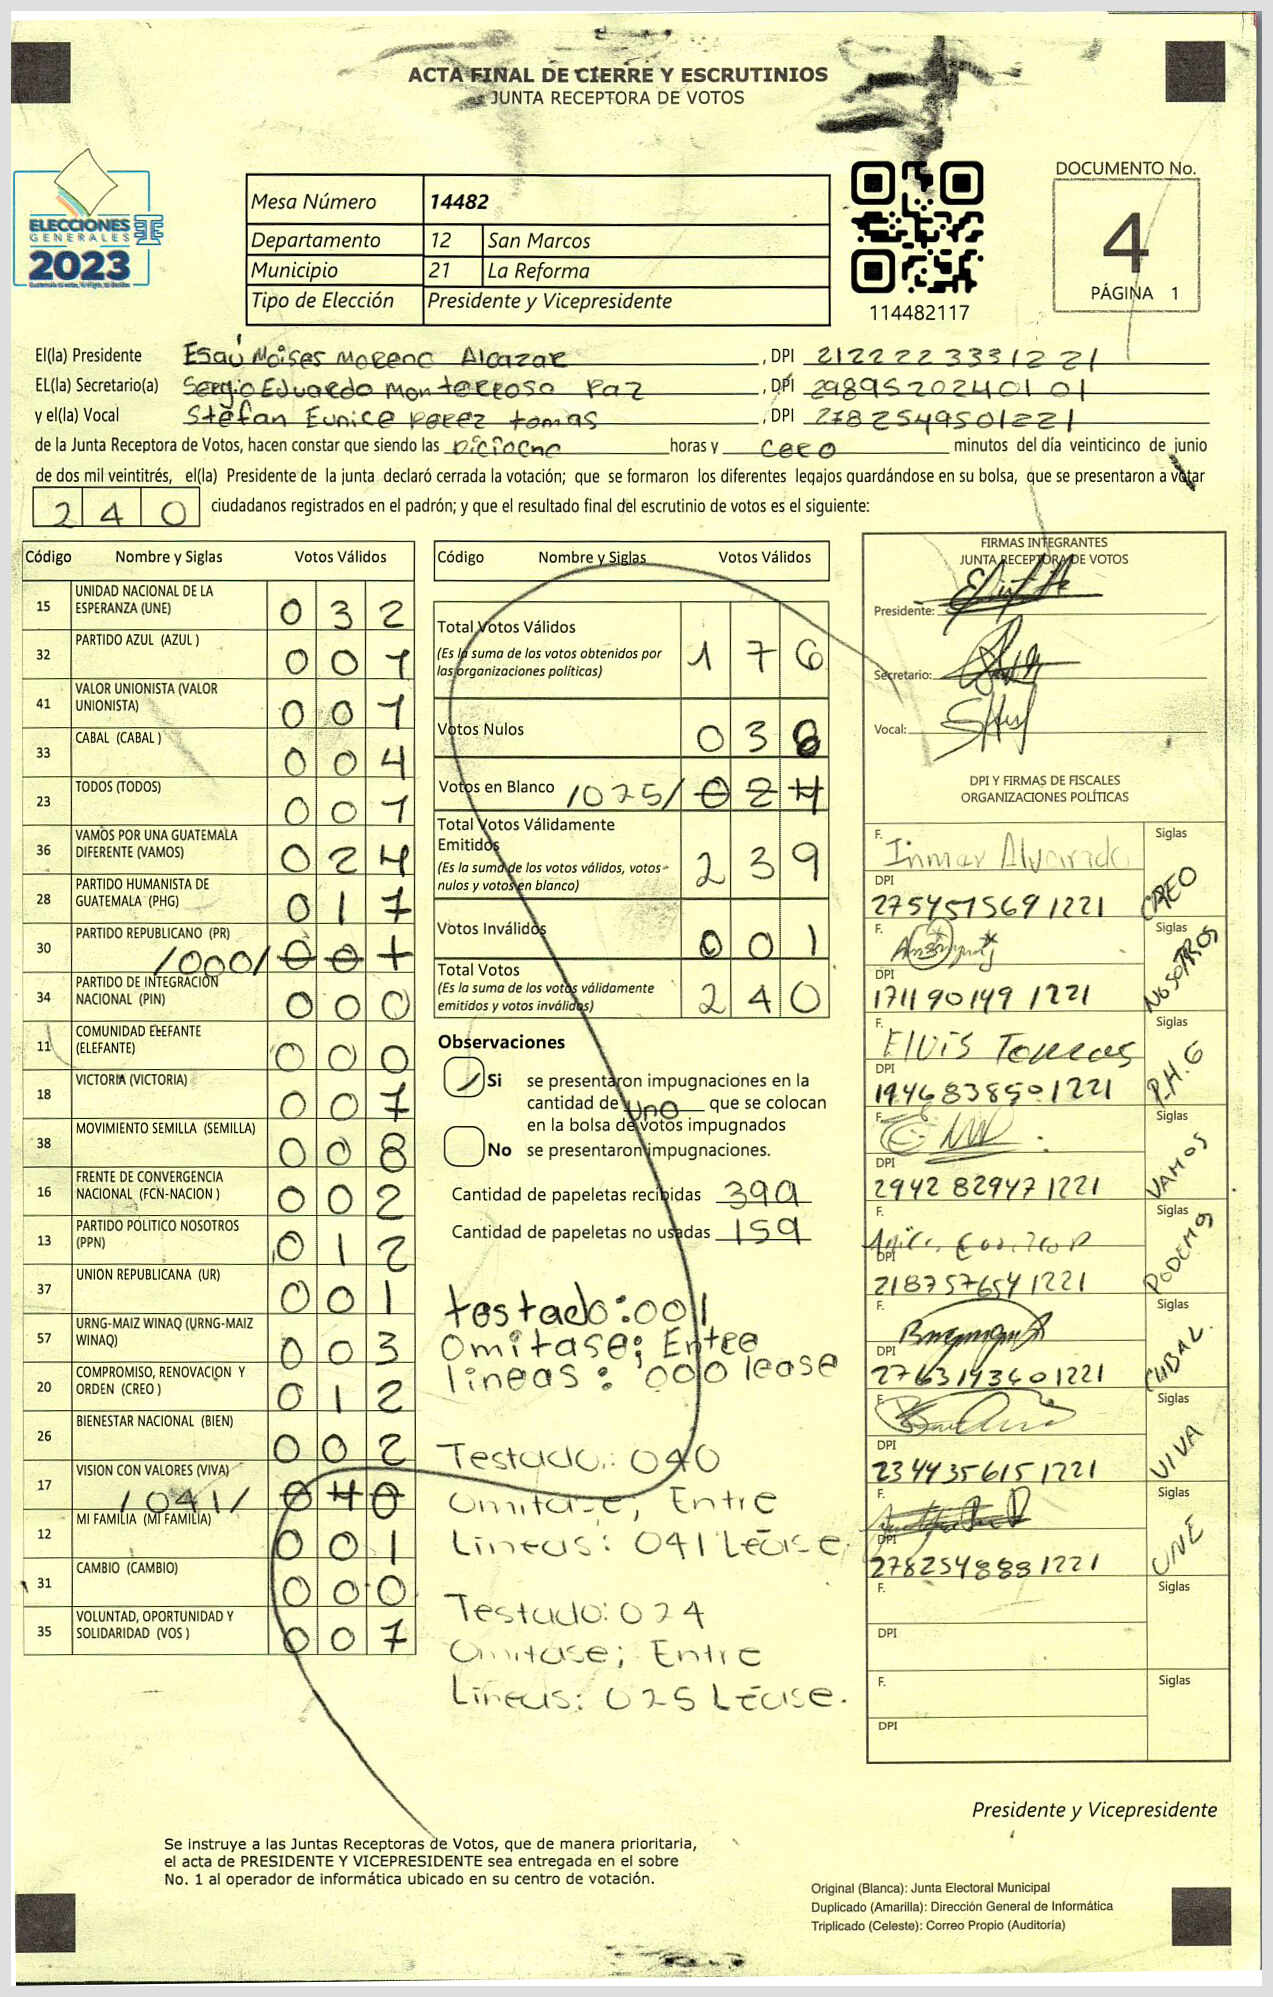 ACTA FINAL DE CIERRE Y ESCRUTINIOS
JUNTA RECEPTORA DE VOTOS
ELECCIONES
GENERALES
2023
Mesa Número 14482
Departamento 12 San Marcos
Municipio 21 La Reforma
Tipo de Elección Presidente y Vicepresidente
114482117
DOCUMENTO No.
4
PÁGINA 1
El(la) Presidente Esaú Moises Moreno Alcazar, DPI 2122223331221
EL(la) Secretario(a) Sergio Eduardo Monterroso Paz, DPI 2989520240101
y el(la) Vocal Stefan Eunice Perez tomas, DPI 2782549501221
de la Junta Receptora de Votos, hacen constar que siendo las horas y cero minutos del día veinticinco de junio
de dos mil veintitrés, el(la) Presidente de la junta declaró cerrada la votación; que se formaron los diferentes legajos guardándose en su bolsa, que se presentaron a votar
240 ciudadanos registrados en el padrón; y que el resultado final del escrutinio de votos es el siguiente:
Código Nombre y Siglas Votos Válidos
15 UNIDAD NACIONAL DE LA ESPERANZA (UNE) 032
32 PARTIDO AZUL (AZUL ) 001
41 VALOR UNIONISTA (VALOR UNIONISTA) 001
33 CABAL (CABAL ) 004
23 TODOS (TODOS) 007
36 VAMOS POR UNA GUATEMALA DIFERENTE (VAMOS) 024
28 PARTIDO HUMANISTA DE GUATEMALA (PHG) 017
30 PARTIDO REPUBLICANO (PR) /000/ 001
34 PARTIDO DE INTEGRACIÓN NACIONAL (PIN) 000
11 COMUNIDAD ELEFANTE (ELEFANTE) 000
18 VICTORIA (VICTORIA) 007
38 MOVIMIENTO SEMILLA (SEMILLA) 008
16 FRENTE DE CONVERGENCIA NACIONAL (FCN-NACION ) 002
13 PARTIDO POLITICO NOSOTROS (PPN) 012
37 UNION REPUBLICANA (UR) 001
57 URNG-MAIZ WINAQ (URNG-MAIZ WINAQ) 003
20 COMPROMISO, RENOVACION Y ORDEN (CREO ) 012
26 BIENESTAR NACIONAL (BIEN) 002
17 VISION CON VALORES (VIVA) /041/ 040
12 MI FAMILIA (MI FAMILIA) 001
31 CAMBIO (CAMBIO) 000
35 VOLUNTAD, OPORTUNIDAD Y SOLIDARIDAD (VOS ) 007
Código Nombre y Siglas Votos Válidos
Total Votos Válidos 176
(Es la suma de los votos obtenidos por
las organizaciones políticas)
Votos Nulos 038
Votos en Blanco /025/ 024
Total Votos Válidamente
Emitidos 239
(Es la suma de los votos válidos, votos
nulos y votos en blanco)
Votos Inválidos 001
Total Votos 240
(Es la suma de los votos válidamente
emitidos y votos inválidos)
Observaciones
Si se presentaron impugnaciones en la
cantidad de uno que se colocan
en la bolsa de votos impugnados
No se presentaron impugnaciones.
Cantidad de papeletas recibidas 399
Cantidad de papeletas no usadas 159
testado:001
Omitase; Entre
lineas: 000 lease
Testado: 040
Omitase; Entre
Líneas: 041 Léase.
Testado: 024
Omitase; Entre
Líneas: 025 Léase.
FIRMAS INTEGRANTES
JUNTA RECEPTORA DE VOTOS
Presidente:
Secretario:
Vocal:
DPI Y FIRMAS DE FISCALES
ORGANIZACIONES POLÍTICAS
F. Inmar Alvarado Siglas
DPI 2754515691221 CREO
F. Siglas
DPI 1711901491221 NOSOTROS
F. Elvis Tomas Siglas
DPI 1946838501221 P.H.G
F. Siglas
DPI 2942829471221 VAMOS
F. Siglas
DPI 2187576541221 PODEMOS
F. Siglas
DPI 2763193601221 CABAL.
F. Siglas
DPI 2344356151221 VIVA
F. Siglas
DPI 2782548881221 UNE
F. Siglas
DPI
F. Siglas
DPI
Presidente y Vicepresidente
Se instruye a las Juntas Receptoras de Votos, que de manera prioritaria,
el acta de PRESIDENTE Y VICEPRESIDENTE sea entregada en el sobre
No. 1 al operador de informática ubicado en su centro de votación.
Original (Blanca): Junta Electoral Municipal
Duplicado (Amarilla): Dirección General de Informática
Triplicado (Celeste): Correo Propio (Auditoría)